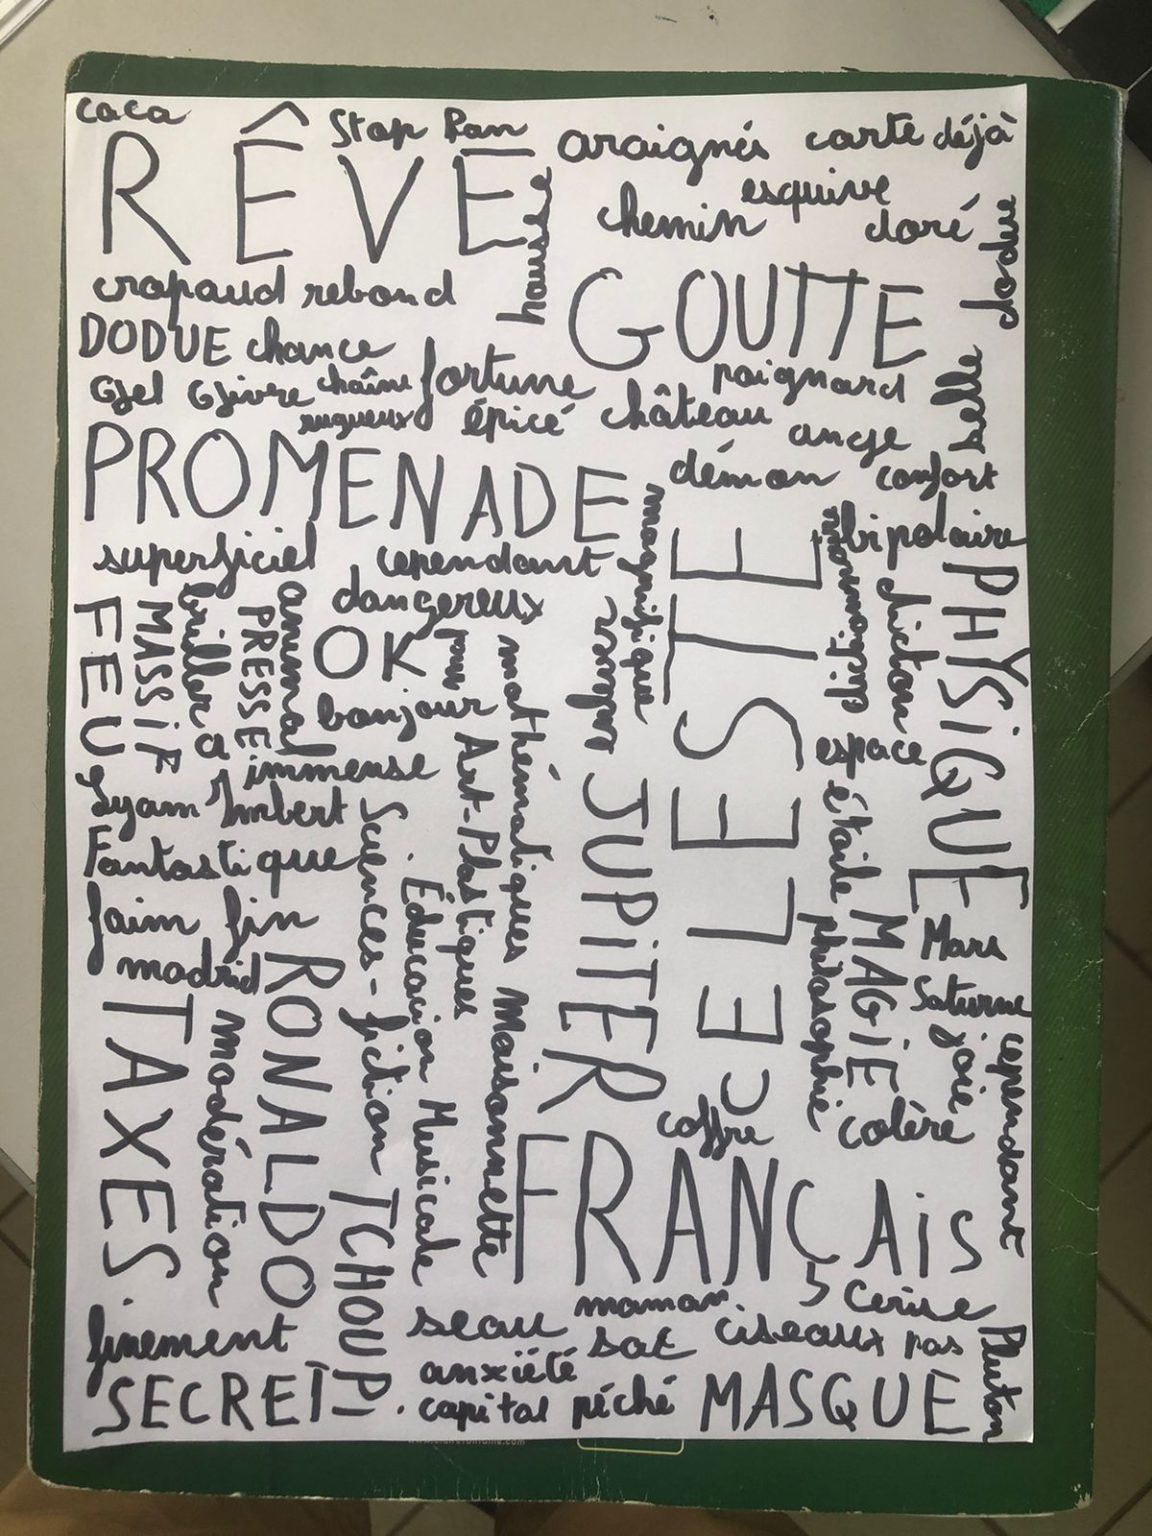 caca
Stop Pan
araignés
carte déjà
RÊVE
hausse
esquive
chemin
doré
dodue
crapaud rebond
GOUTTE
DODUE chance
poignard
Gel Givre chaîne fortune
selle
rugueux
épicé
château
ange
PROMENADE
démon
confort
magnifique
CELESTE
bipolaire
superficiel
cependant
dangereux
PHYSiQUE
dicton
FEU
MASSiF
briller à
PRESSE
animal
OK
pour
mathématiques
bonjour
espace
immense
Art-Plastiques
JUPiTER
étoile
Lyam Imbert
Sciences-fiction
Fantastique
Éducation Musicale
philosophie
MAGiE
faim fin
Mars
madrid
RONALDO
Saturne
TAXES
modération
Maisonnette
joie
cependant
coffre
colère
FRANÇAiS
TCHOUPI.
maman
cerise
finement
seau
sac
ciseaux pas
Pluton
anxiété
SECRET
capital péché
MASQUE